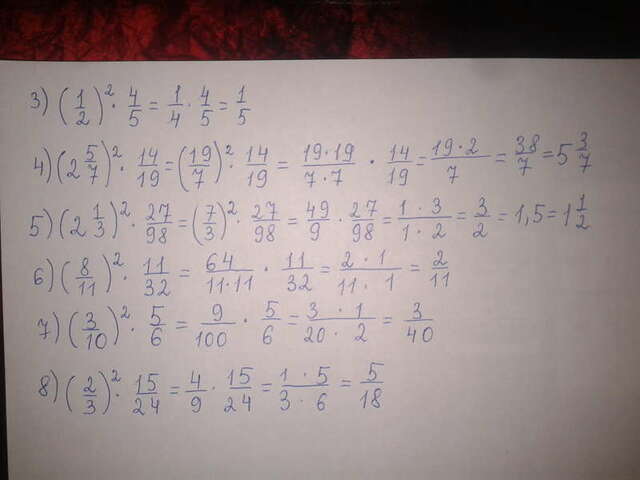 3) (1/2)² · 4/5 = 1/4 · 4/5 = 1/5
4) (2 5/7)² · 14/19 = (19/7)² · 14/19 = 19·19/7·7 · 14/19 = 19·2/7 = 38/7 = 5 3/7
5) (2 1/3)² · 27/98 = (7/3)² · 27/98 = 49/9 · 27/98 = 1·3/1·2 = 3/2 = 1,5 = 1 1/2
6) (8/11)² · 11/32 = 64/11·11 · 11/32 = 2·1/11·1 = 2/11
7) (3/10)² · 5/6 = 9/100 · 5/6 = 3·1/20·2 = 3/40
8) (2/3)² · 15/24 = 4/9 · 15/24 = 1·5/3·6 = 5/18